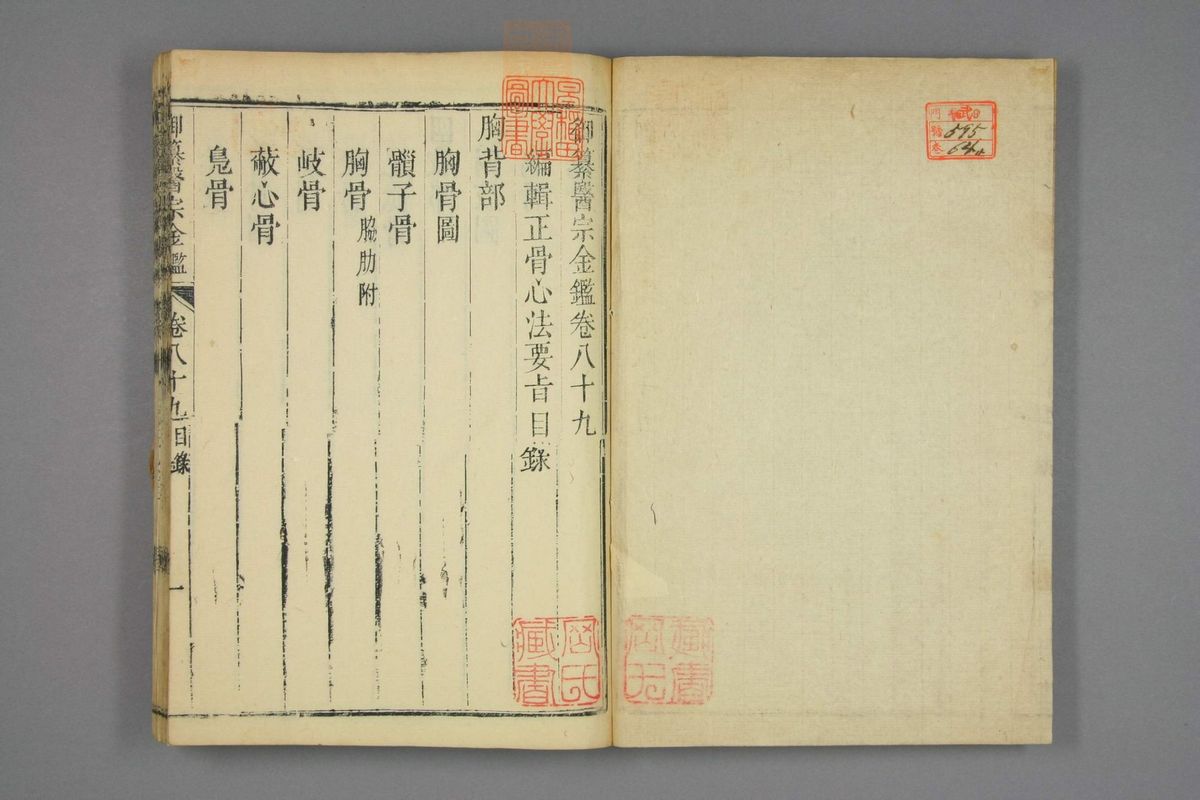 御纂醫宗金鑑卷八十九
編輯正骨心法要㫖目錄
胸背部
胸骨圖
髃子骨
胸骨 脇肋附
岐骨
蔽心骨
鳧骨
御纂醫宗金鑑 卷八十九目錄 一
圖書
藏書
595